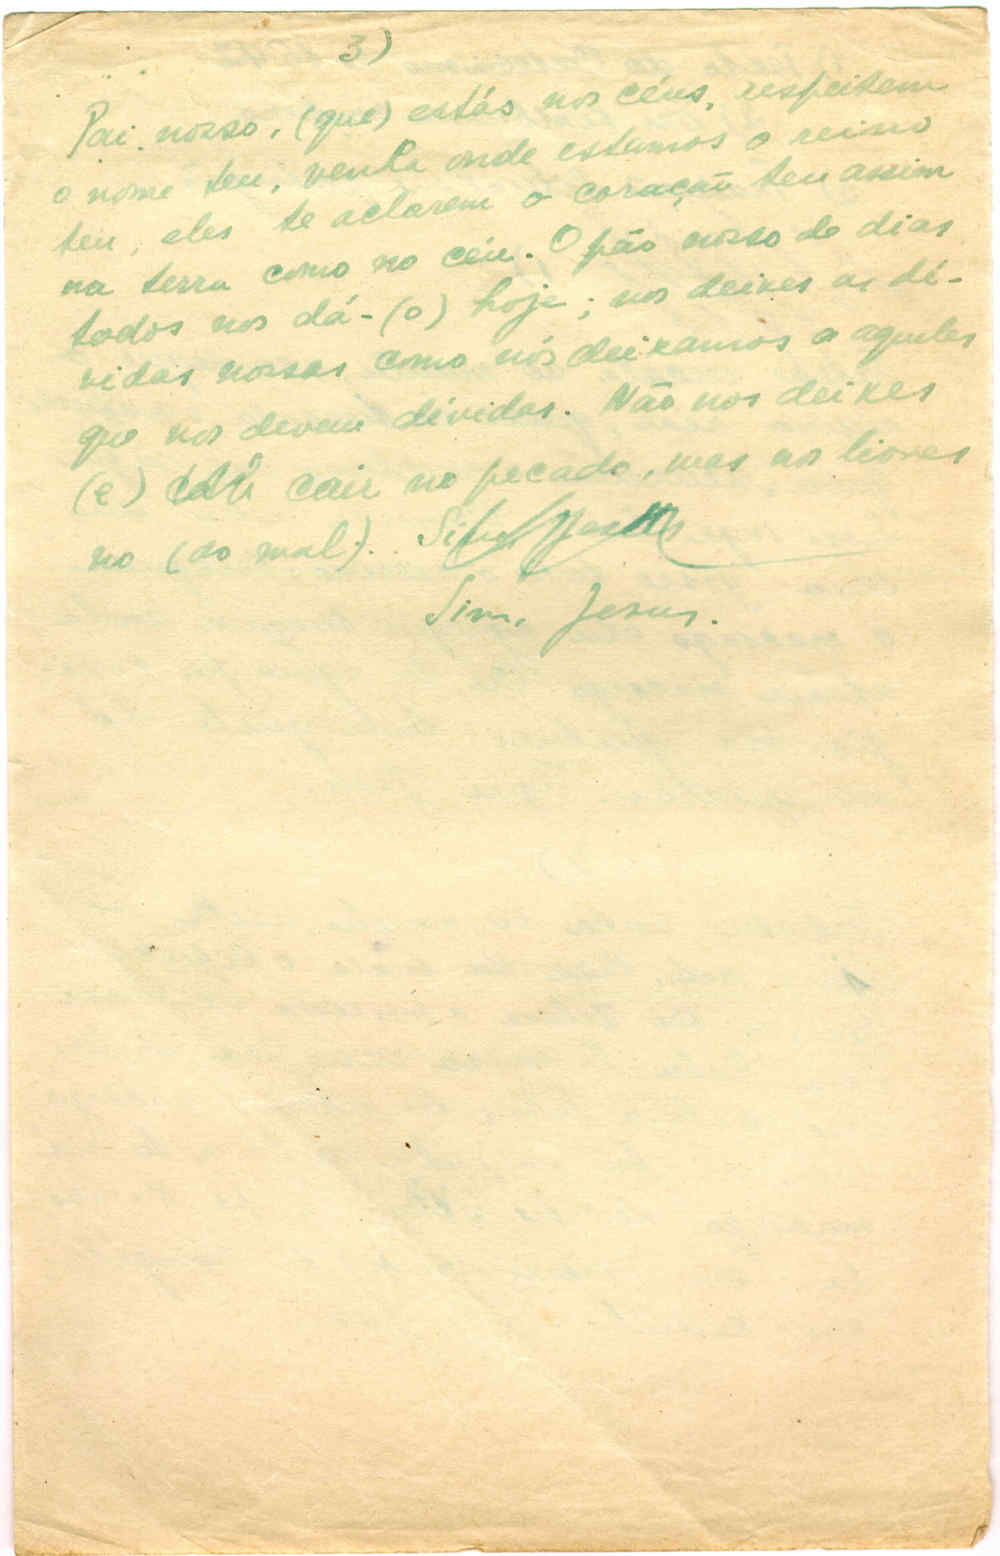 3)
Pai nosso, (que) estás nos céus, respeitem
o nome teu, venha onde estamos o reino
teu, eles te aclarem o coração teu assim
na terra como no céu. O pão nosso de dias
todos nos dá-(o) hoje; nos deixes as dí-
vidas nossas como nós deixamos a aqueles
que nos devem dívidas. Não nos deixes
(e) cair no pecado, mas nos livres
no (do mal).
Sim, Jesus.